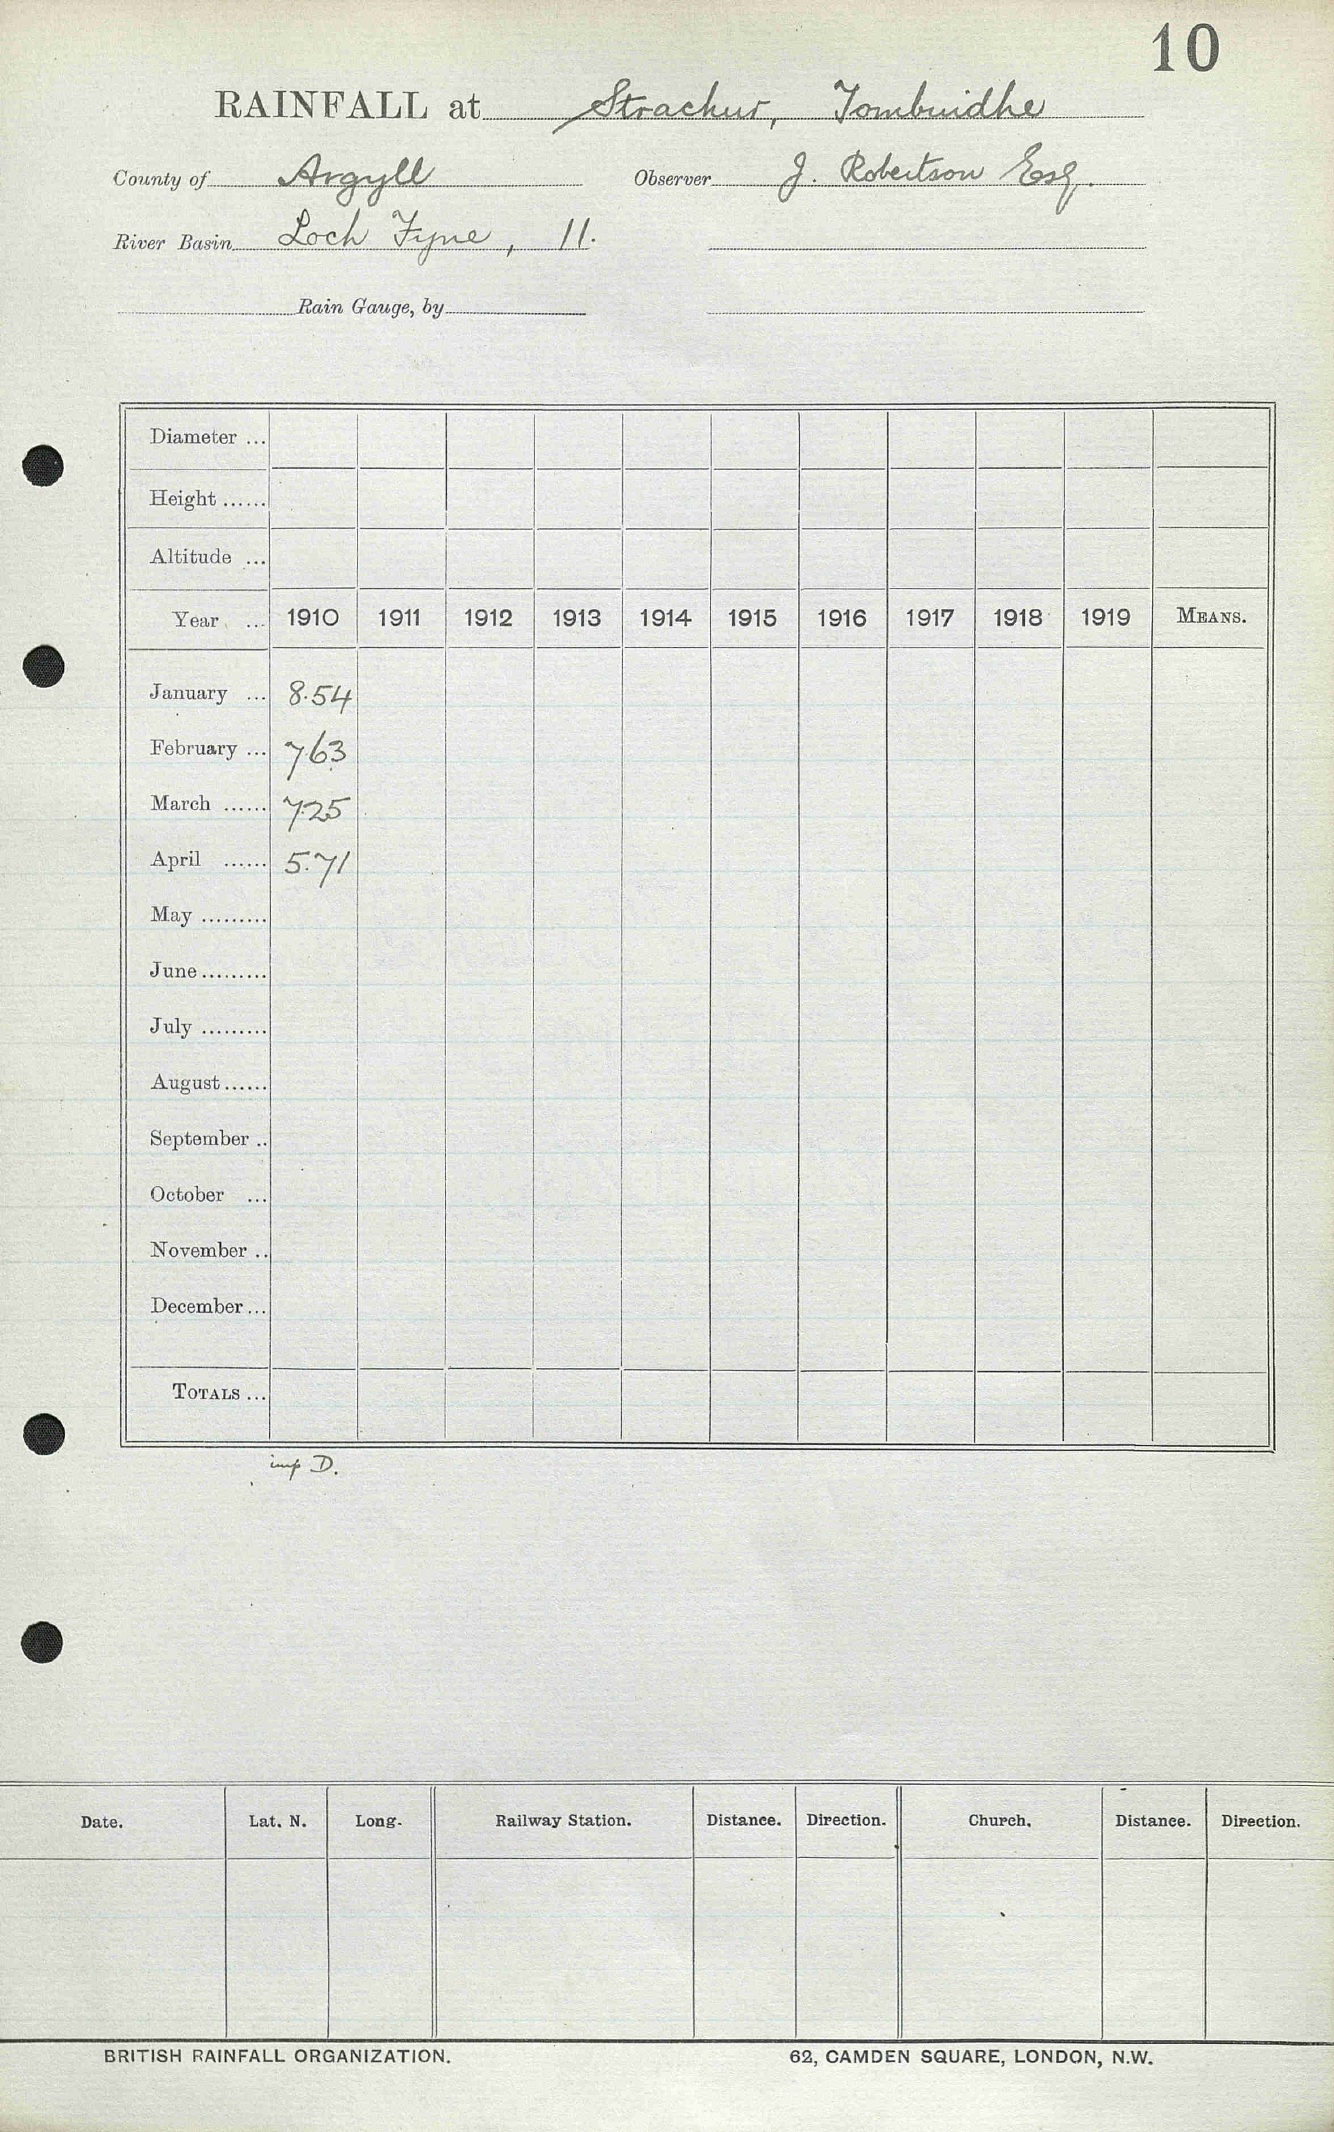 10
RAINFALL at Strachur, Tombuidhe
County of Argyll Observer J. Robertson Esq.
River Basin Loch Fyne, 11.
Rain Gauge, by
Diameter ...
Height ......
Altitude ...
Year ... 1910 1911 1912 1913 1914 1915 1916 1917 1918 1919 MEANS.
January ... 8.54
February ... 7.63
March ...... 7.25
April ...... 5.71
May .........
June.........
July .........
August......
September ..
October ...
November ..
December...
TOTALS ...
imp D.
Date. Lat. N. Long. Railway Station. Distance. Direction. Church. Distance. Direction.
BRITISH RAINFALL ORGANIZATION. 62, CAMDEN SQUARE, LONDON, N.W.